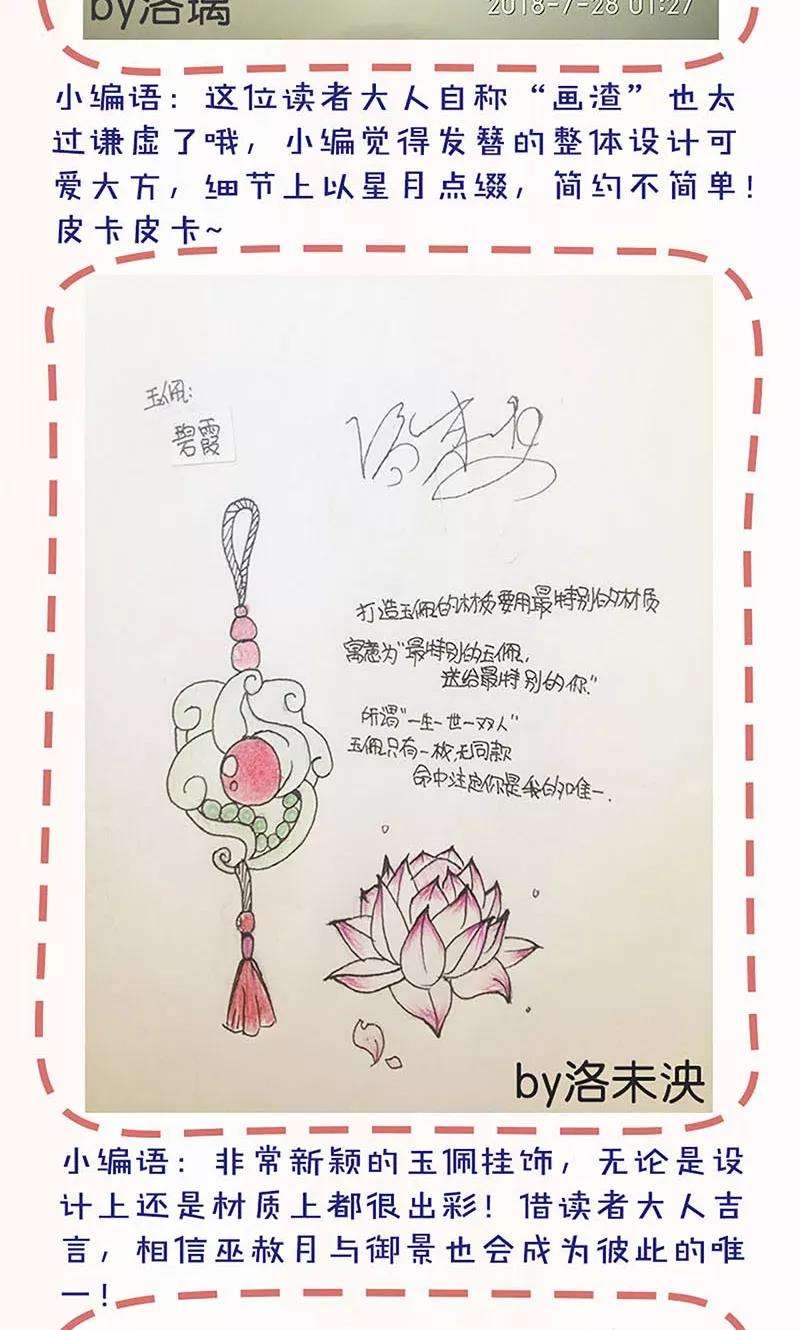 by洛璃
2018-7-28 01:27
小编语：这位读者大人自称“画渣”也太
过谦虚了哦，小编觉得发替的整体设计可
爱大方，细节上以星月点缀，简约不简单！
皮卡皮卡~
玉佩：
碧霞
洛未泱
打造玉佩的材质要用最特别的材质
寓意为“最特别的玉佩，
送给最特别的你”
所谓“一生一世一双人”
玉佩只有一枚，无同款
命中注定你是我的唯一.
by洛未泱
小编语：非常新颖的玉佩挂饰，无论是设
计上还是材质上都很出彩！借读者大人吉
言，相信巫赦月与御景也会成为彼此的唯
一！